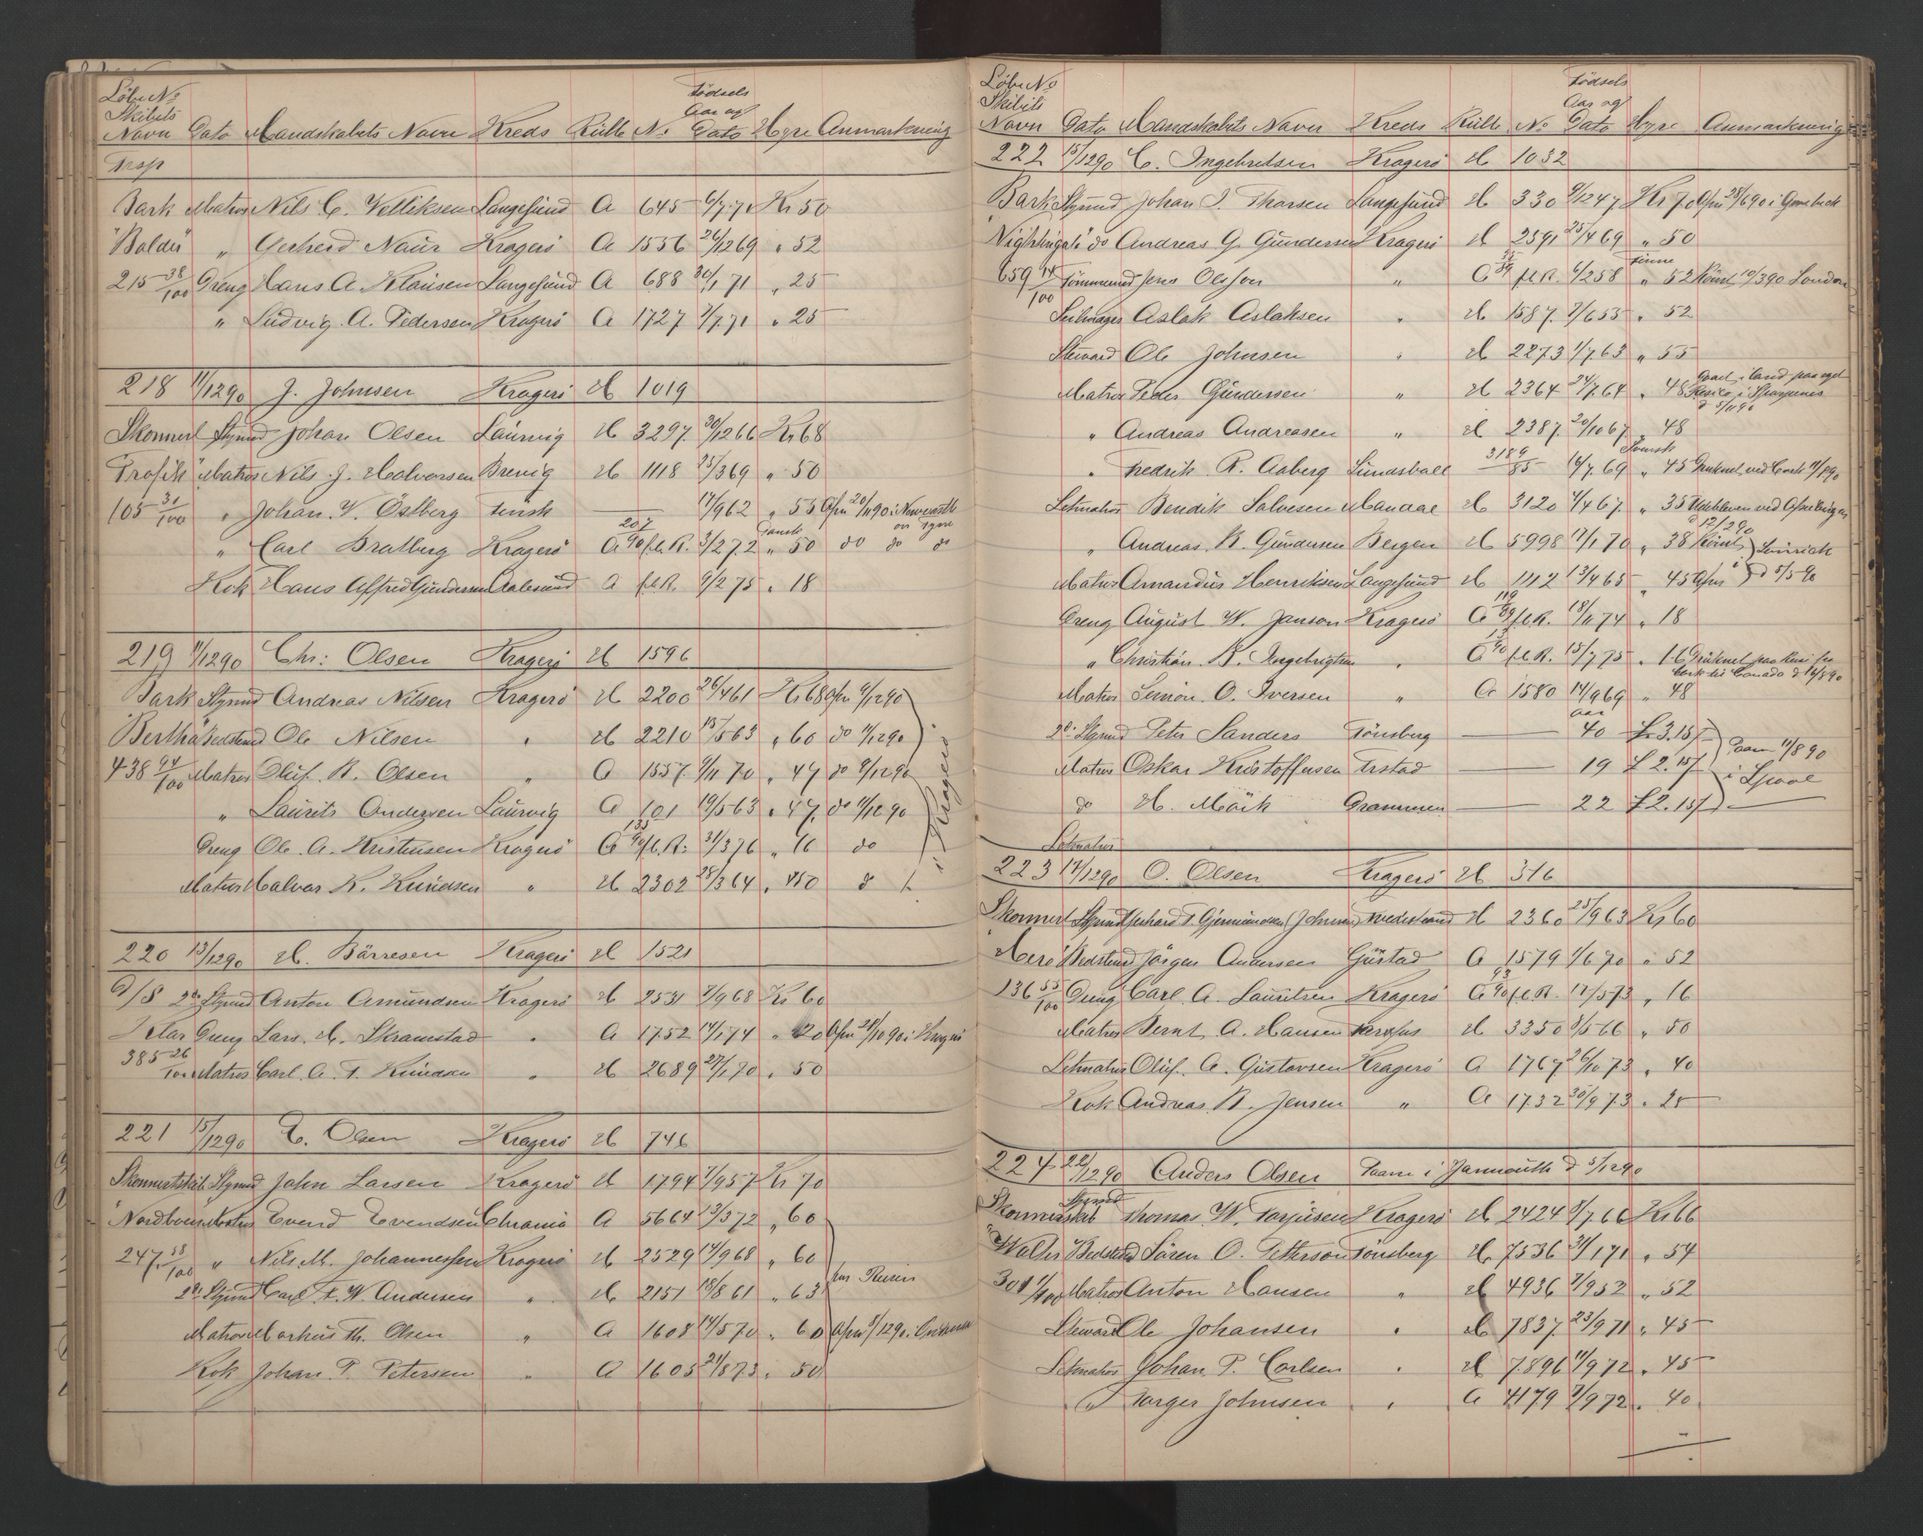 Löbe No
Skibets Navn Dato Mandskabets Navn Kreds Rulle No Födsels Aar og Dato Hyre Anmærkning
Bark Matros Nils C. Langesund A 645 6/7 71 Kr 50
"Balder" „ Gerhard Kragerö A 1556 26/12 69 „ 52
215 38/100 Dreng Hans A. Klausen Langesund A 688 30/1 71 „ 25
„ Ludvig A. Pedersen Kragerö A 1727 7/7 71 „ 25
218 11/12 90 J. Johnsen Kragerö H 1019
Skonnert Stymd Johan Olsen Laurvig H 3297 30/12 66 Kr 68
Matros Nils J. Halvorsen Brevig H 1118 25/3 69 „ 50
105 31/100 „ Johan V. Östberg finsk 17/9 62 „ 55 Afm 20/11 90 i
„ Carl Bratberg Kragerö A 207/90 fl.R. 3/2 72 Dansk „ 50 do do do
Kok Hans Alfred Gundersen Aalesund A fl.R. 9/2 75 „ 18
219 11/12 90 Chr: Olsen Kragerö H 1596
Bark Stymd Andreas Nilsen Kragerö H 2200 26/4 61 Kr 68 Afm 9/12 90
"Bertha" Bedstemd Ole Nilsen „ H 2210 15/5 63 „ 60 do 11/12 90
438 94/100 Matros Oluf R. Olsen „ A 1557 9/11 70 „ 47 do 9/12 90
„ Laurits Andersen Laurvig A 101 19/5 63 „ 47 do 11/12 90
i Kragerö
Dreng Ole A. Kristensen Kragerö A 135/90 fl.R. 31/3 76 „ 16 do
Matros Halvor K. Knudsen „ H 2302 28/3 64 „ 50 d
220 13/12 90 H. Börresen Kragerö H 1521
D/S 2den Stymd Anton Amundsen Kragerö H 2531 2/9 68 Kr 60
Dreng Lars H. Skramstad „ A 1752 14/1 74 „ 20 Afm 28/10 90 i Kragerö
385 26/100 Matros Carl A. T. Knudsen „ H 2689 27/1 70 „ 50
221 15/12 90 E. Olsen Kragerö H 746
Skonnertskib Stymd John Larsen Kragerö H 1794 7/9 57 Kr 70
Matros Evend Evendsen Chrania A 5664 13/3 72 „ 60
247 58/100 „ Nils M. Johannessen Kragerö H 2529 14/9 68 „ 60
2den Stymd Carl F. W. Andersen „ H 2151 18/8 61 „ 63
Matros Markus Th. Olsen „ A 1608 14/5 70 „ 60 Afm 9/12 90 i
Kok Johan P. Petersen „ A 1605 21/8 73 „ 50
Löbe No
Skibets Navn Dato Mandskabets Navn Kreds Rulle No Födsels Aar og Dato Hyre Anmærkning
222 15/12 90 C. Ingebretsen Kragerö H 1032
Bark Stymd Johan I. Thorsen Langesund H 330 9/12 47 Kr 70 Afm 28/6 90 i
"Nightingale" do Andreas G. Gundersen Kragerö H 2591 25/4 69 „ 50
659 14/100 Tömmermd Jens Olsson „ A fl.R. 6/2 58 „ 52 Römt 10/3 90 London
Seilmager Aslak Aslaksen „ H 1587 7/6 55 „ 52
Steward Ole Johnsen „ H 2273 1/7 63 „ 55
Matros Peder Gundersen „ H 2364 24/1 64 „ 48
„ Andreas Andreasen „ H 2387 20/10 67 „ 48
„ Fredrik R. Aaberg Sundsvall 3189/85 14/7 69 Svensk „ 45 Druknet ved Cork
Letmatros Bendik Salvesen Mandal H 3120 4/4 67 „ 35
„ Andreas R. Gundersen Bergen H 5998 17/1 70 „ 38 Römt
Matros Amandus Henriksen Langesund H 1112 13/4 65 „ 45 Afm d 5/5 90
Dreng August W. Janson Kragerö A 119/89 fl.R. 18/11 74 „ 18
„ Christian R. Ingebrigtsen „ A fl.R. 15/7 75 „ 16 Druknet paa Reise fra Cork til Canada
Matros Simon O. Iversen „ A 1580 14/9 69 „ 48
2den Stymd Peter Sanders Tönsberg Aar 40 £ 3.15/ Paam 11/8 90
Matros Oskar Kristoffersen 19 £ 2.15/
do H. Mörk Drammen 22 £ 2.15/
Letmatros
223 17/12 90 O. Olsen Kragerö H 316
Skonnert Stymd Gerhard T. Gjermundsen (Johnsen) H 2360 25/9 63 Kr 60
Bedstemd Jörgen Andersen A 1579 1/6 70 „ 52
136 55/100 Dreng Carl A. Lauritsen Kragerö A 93/90 fl.R. 12/5 73 „ 16
Matros Bernt A. Hansen H 3350 8/5 66 „ 50
Letmatros Oluf A. Gustavsen Kragerö A 1767 26/10 73 „ 40
Kok Andreas R. Jensen „ A 1732 30/9 73 „ 25
224 22/12 90 Anders Olsen Paam i Jarmouth d 5/12 90
Skonnertskib Stymd Thomas W. Torjusen Kragerö H 2424 8/7 66 Kr 66
Bedstemd Sören O. Petterson Tönsberg H 7536 31/1 71 „ 54
Matros Anton Hansen „ H 4936 7/9 52 „ 52
Steward Ole Johansen „ H 7837 23/9 71 „ 45
Letmatros Johan P. Carlsen „ H 7896 11/9 72 „ 45
Torger Johnsen „ A 4179 7/9 72 „ 40